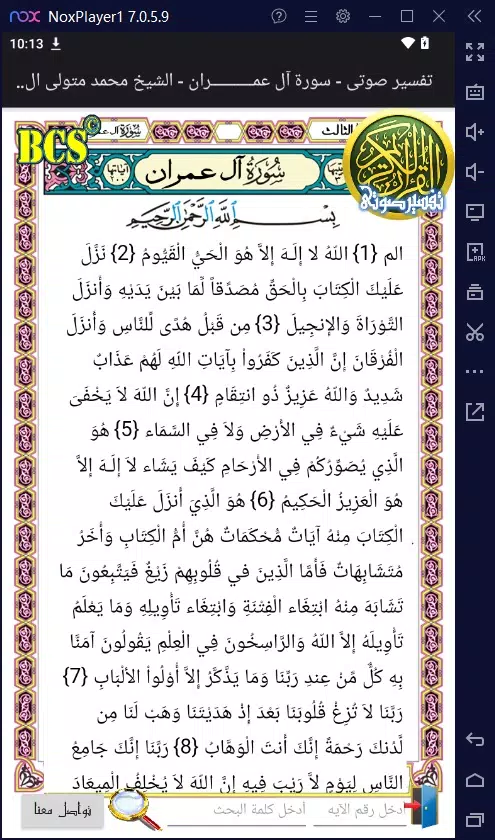 NoxPlayer1 7.0.5.9
10:13
تفسير صوتى - سورة آل عمـــــــران - الشيخ محمد متولى ال..
BCS©
الثالث
سُورَةُ آل عمران
آياتها
بِسْمِ اللَّهِ الرَّحْمَنِ الرَّحِيمِ
القرآن الكريم
تفسير صوتى
الم {1} اللّهُ لا إِلَـهَ إِلاَّ هُوَ الْحَيُّ الْقَيُّومُ {2} نَزَّلَ
عَلَيْكَ الْكِتَابَ بِالْحَقِّ مُصَدِّقاً لِّمَا بَيْنَ يَدَيْهِ وَأَنزَلَ
التَّوْرَاةَ وَالإِنجِيلَ {3} مِن قَبْلُ هُدًى لِّلنَّاسِ وَأَنزَلَ
الْفُرْقَانَ إِنَّ الَّذِينَ كَفَرُواْ بِآيَاتِ اللّهِ لَهُمْ عَذَابٌ
شَدِيدٌ وَاللّهُ عَزِيزٌ ذُو انتِقَامٍ {4} إِنَّ اللّهَ لاَ يَخْفَىَ
عَلَيْهِ شَيْءٌ فِي الأَرْضِ وَلاَ فِي السَّمَاء {5} هُوَ
الَّذِي يُصَوِّرُكُمْ فِي الأَرْحَامِ كَيْفَ يَشَاء لاَ إِلَـهَ إِلاَّ
هُوَ الْعَزِيزُ الْحَكِيمُ {6} هُوَ الَّذِيَ أَنزَلَ عَلَيْكَ
الْكِتَابَ مِنْهُ آيَاتٌ مُّحْكَمَاتٌ هُنَّ أُمُّ الْكِتَابِ وَأُخَرُ
مُتَشَابِهَاتٌ فَأَمَّا الَّذِينَ في قُلُوبِهِمْ زَيْغٌ فَيَتَّبِعُونَ مَا
تَشَابَهَ مِنْهُ ابْتِغَاء الْفِتْنَةِ وَابْتِغَاء تَأْوِيلِهِ وَمَا يَعْلَمُ
تَأْوِيلَهُ إِلاَّ اللّهُ وَالرَّاسِخُونَ فِي الْعِلْمِ يَقُولُونَ آمَنَّا
بِهِ كُلٌّ مِّنْ عِندِ رَبِّنَا وَمَا يَذَّكَّرُ إِلاَّ أُوْلُواْ الألْبَابِ {7}
رَبَّنَا لاَ تُزِغْ قُلُوبَنَا بَعْدَ إِذْ هَدَيْتَنَا وَهَبْ لَنَا مِن
لَّدُنكَ رَحْمَةً إِنَّكَ أَنتَ الْوَهَّابُ {8} رَبَّنَا إِنَّكَ جَامِعُ
النَّاسِ لِيَوْمٍ لاَّ رَيْبَ فِيهِ إِنَّ اللّهَ لاَ يُخْلِفُ الْمِيعَادَ
أدخل رقم الآيه
أدخل كلمة البحث
تواصل معنا